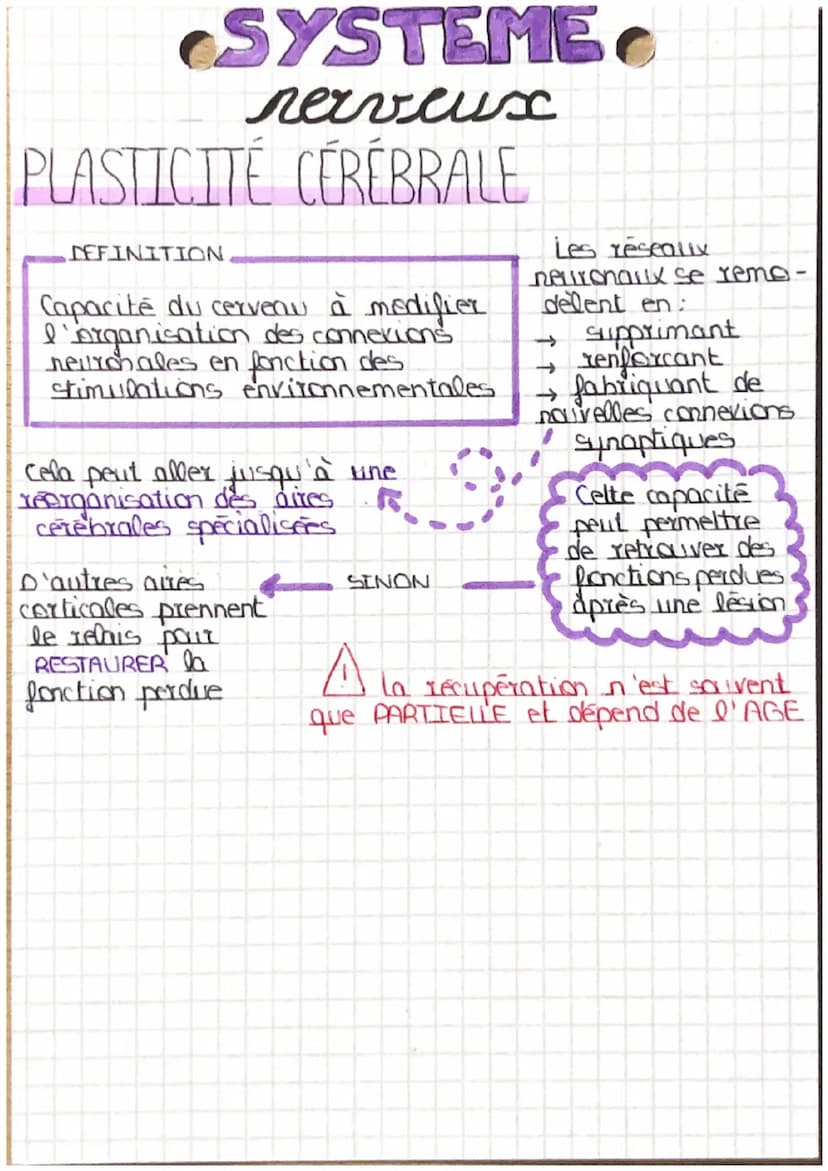 SYSTEME
nerveux
PLASTICITÉ CÉRÉBRALE
DEFINITION
Capacité du cerveau à modifier
l'organisation des connexions
neuronales en fonction des
stimulations environnementales
Les réseaux
neuronaux se remo-
dèlent en :
→ supprimant
→ renforcant
→ fabriquant de
nouvelles connexions
synaptiques
Cela peut aller jusqu'à une
réorganisation des aires
cérébrales spécialisées
Cette capacité
peut permettre
de retrouver des
fonctions perdues
après une lésion
SINON
D'autres aires
corticales prennent
le relais pour
RESTAURER la
fonction perdue
! la récupération n'est souvent
que PARTIELLE et dépend de l'AGE